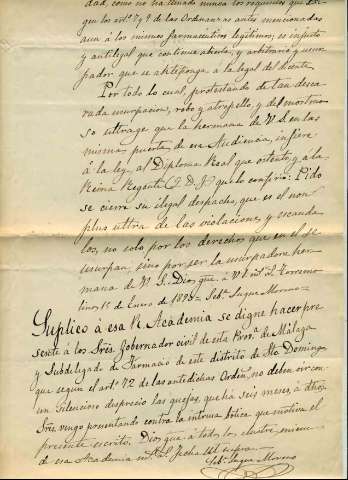 dad, como no ha llenado nunca los requisitos que exi-
gen los artos 7 y 8 de las Ordenanzas antes mencionadas
aun á los mismos farmaceuticos legítimos; es injusto
y antilegal que continue abierta, y arbitrario y usur-
pador que se anteponga á la legal del
Por todo lo cual, protestando de tan desca-
rada usurpacion, robo y atropello, y del enormisi-
so ultrage que la hermana de V. S. en las
mismas puertas de esa Audiencia, infiere
á la ley, al Diploma Real que ostento, y á la
Reina Regente (Q. D. G.) que lo confirio: Pido
se cierre su ilegal despacho, que es el non
plus ultra de las violaciones y escanda-
los, no solo por los derechos que en el se
usurpan, sino por ser la usurpadora her-
mana de V. S. Dios gue. á V. S. ms. as. Torremo-
linos 15 de Enero de 1898 = Sebn. Luque Moreno =
Suplico á esa R. Academia se digne hacer pre
sente á los Sres. Gobernador civil de esta Prova. de Málaga
y Subdelegado de Farmacia de este distrito de Sto. Domingo
que segun el arto. 72 de las antedichas Ordens. no deben oir con
un silencioso desprecio las quejas, que há seis meses, á dhos.
Sres. vengo presentando contra la intrusa botica que motiva el
presente escrito. Dios gue. á todos los ilustres miem-
de esa Academia ms. as. fecha ut supra =
Sebn. Luque Moreno